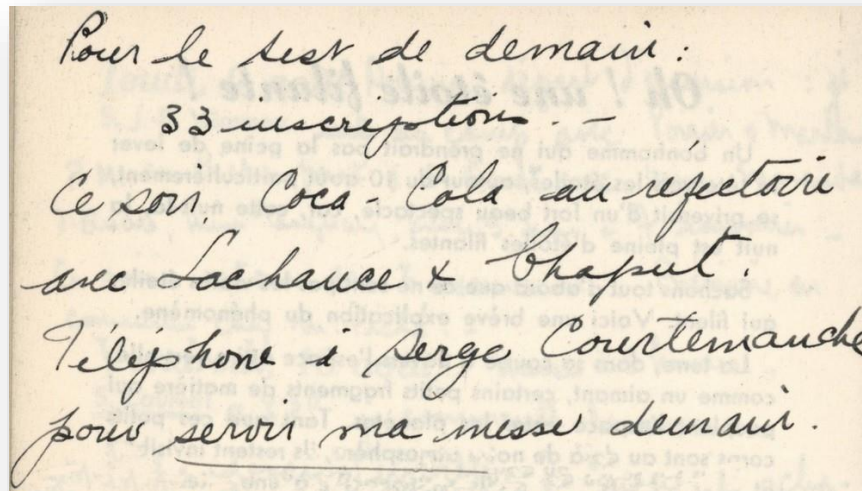 Pour le test de demain :
33 inscriptions. –
Ce soir, Coca-Cola au réfectoire
avec Lachance & Chaput.
Téléphoné à Serge Courtemanche
pour servir ma messe demain.